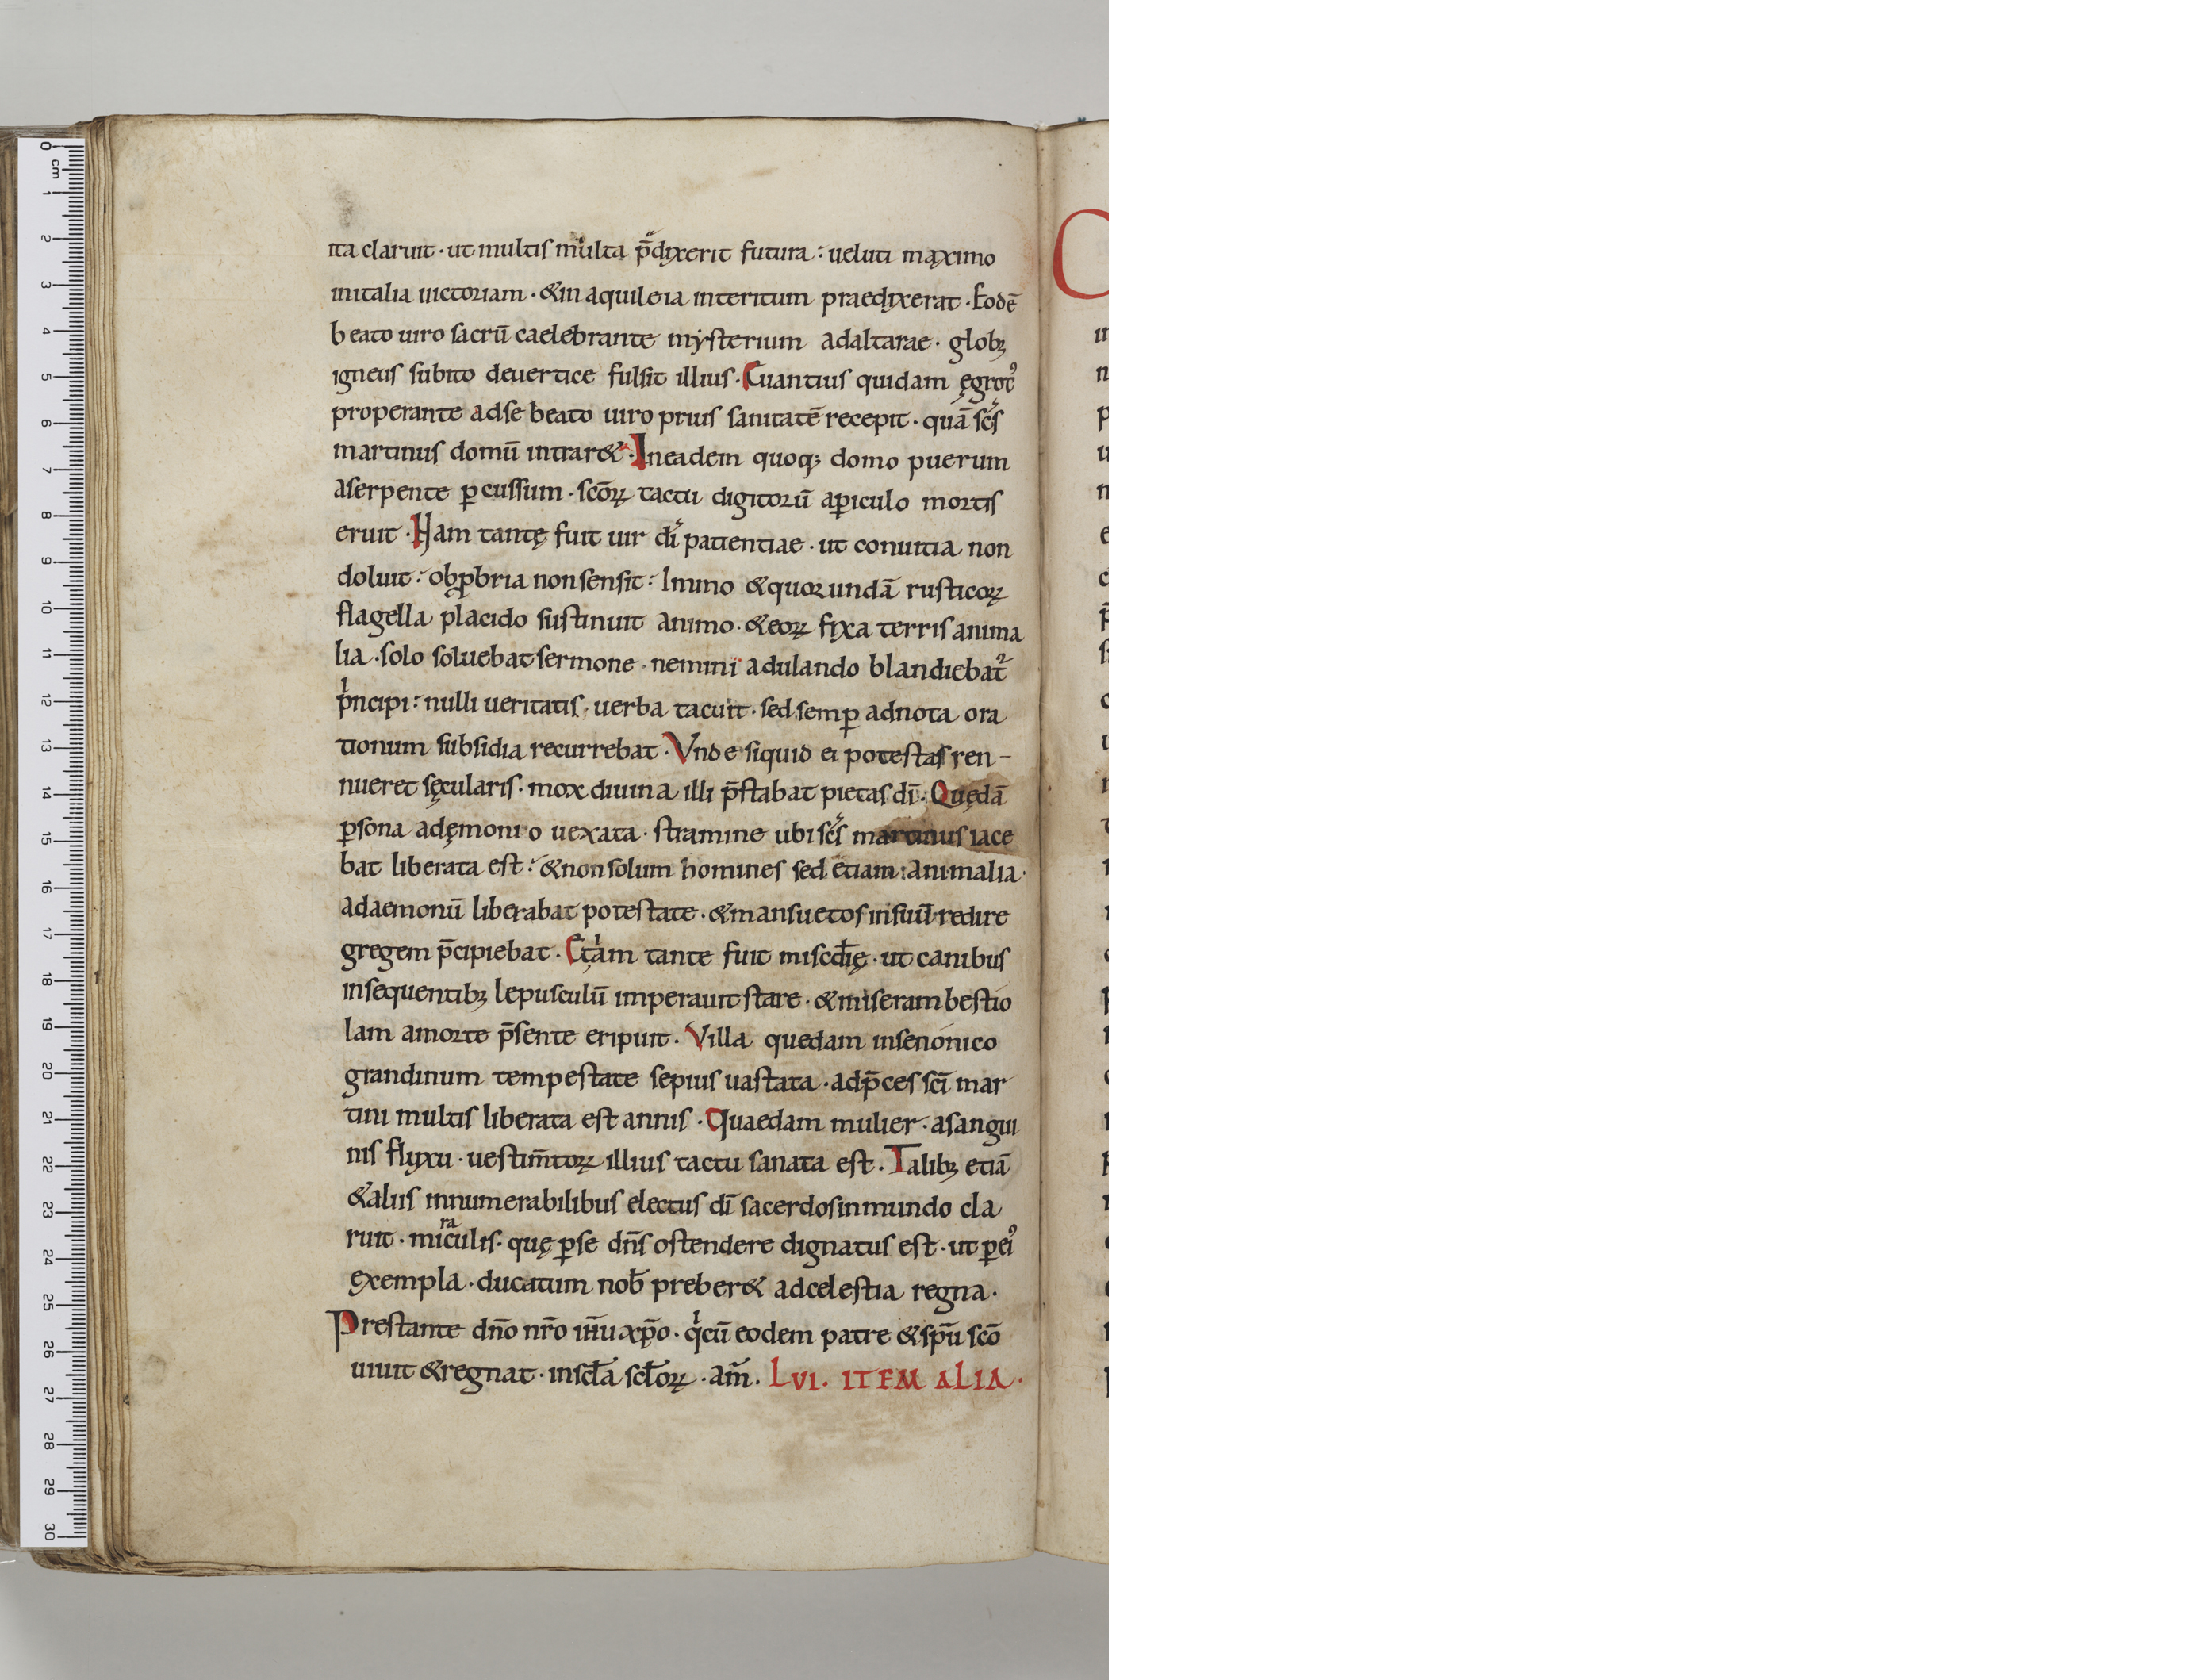 ita claruit · ut multis multa p̄dixerit futura : ueluti maximo
initalia uictoriam · &in aquileia interitum praedixerat · Eodē
beato uiro sacrū caelebrante mẏsterium adaltarae · globꝫ
igneus subito deuertice fulsit illius · Euantius quidam ęgrot᾿
properante adse beato uiro prius sanitatē recepit · quā sc̄s
martinus domū intrar& · Ineadem quoq; domo puerum
aserpente ꝑcussum · scōꝝ tactu digitorū aꝑiculo mortis
eruit · Nam tantę fuit uir dī patientiae · ut conuitia non
doluit : obꝓbria non sensit : Immo &quorundā rusticoꝝ
flagella placido sustinuit animo · &eoꝝ fixa terris anima
lia · solo soluebat sermone · nemini adulando blandiebat᷑
pͥncipi : nulli ueritatis · uerba tacuit · sed semꝑ adnota ora
tionum subsidia recurrebat · Vnde siquid ei potestas ren-
nueret sęcularis · mox diuina illi p̄stabat pietas dī · Quędā
ꝑsona adęmonio uexata · stramine ubi sc̄s martinus iace
bat liberata est : &non solum homines sed etiam animalia ·
adaemonū liberabat potestate · &mansuetos insuuł redire
gregem p̄cipiebat · Etiam tante fuit miscdię · ut canibus
insequentibꝫ lepusculū imperauit stare · &miseram bestio
lam amorte p̄sente eripuit · Villa quedam insenonico
grandinum tempestate sepius uastata · adp̄ces scī mar
tini multis liberata est annis · Quaedam mulier · asangui
nis fluxu · uestim̄toꝝ illius tactu sanata est · Talibꝫ etiā
&aliis innumerabilibus electus dī sacerdos inmundo cla
ruit · miraculis · quę ꝑse dn̄s ostendere dignatus est · ut ꝑei᾿
exempla · ducatum nob̄ preber& adcelestia regna ·
Prestante dn̄o nr̄o ih̄u xp̄o · qͥcū eodem patre &sp̄u scō
uiuit &regnat · inscła scłoꝝ · am̄ . LVI · ITEM ALIA ·
C